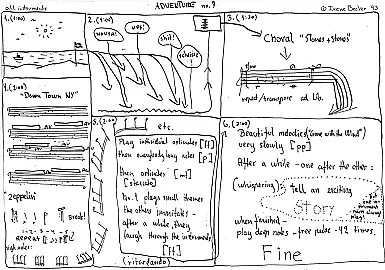 all instruments
ADVENTURE no. 9
© Irene Becker 93
1. (1:00)
2. (1:00)
whaaa!
ups!
shit!
3. (1:30)
Choral "Stones + stones"
repeat/transpose ad lib.
4. (2:00)
"Down Town NY"
Zeppelin
1-2-3-4-5
REPEAT
high notes:
5. (2:00)
etc.
Play individual ostinates [ff]
then everybody long notes [p]
then ostinates [mf]
[staccato]
No. 1 plays small themes
the others immitate -
after a while, then
laugh through the instruments
[ff]
(ritardando)
6. (2:00)
Beautiful melodies ("Gone with the Wind")
very slowly [pp]
After a while - one after the other:
(whispering) tell an exciting
Story
when finished -
play deep notes - free pulse - 42 times.
Fine